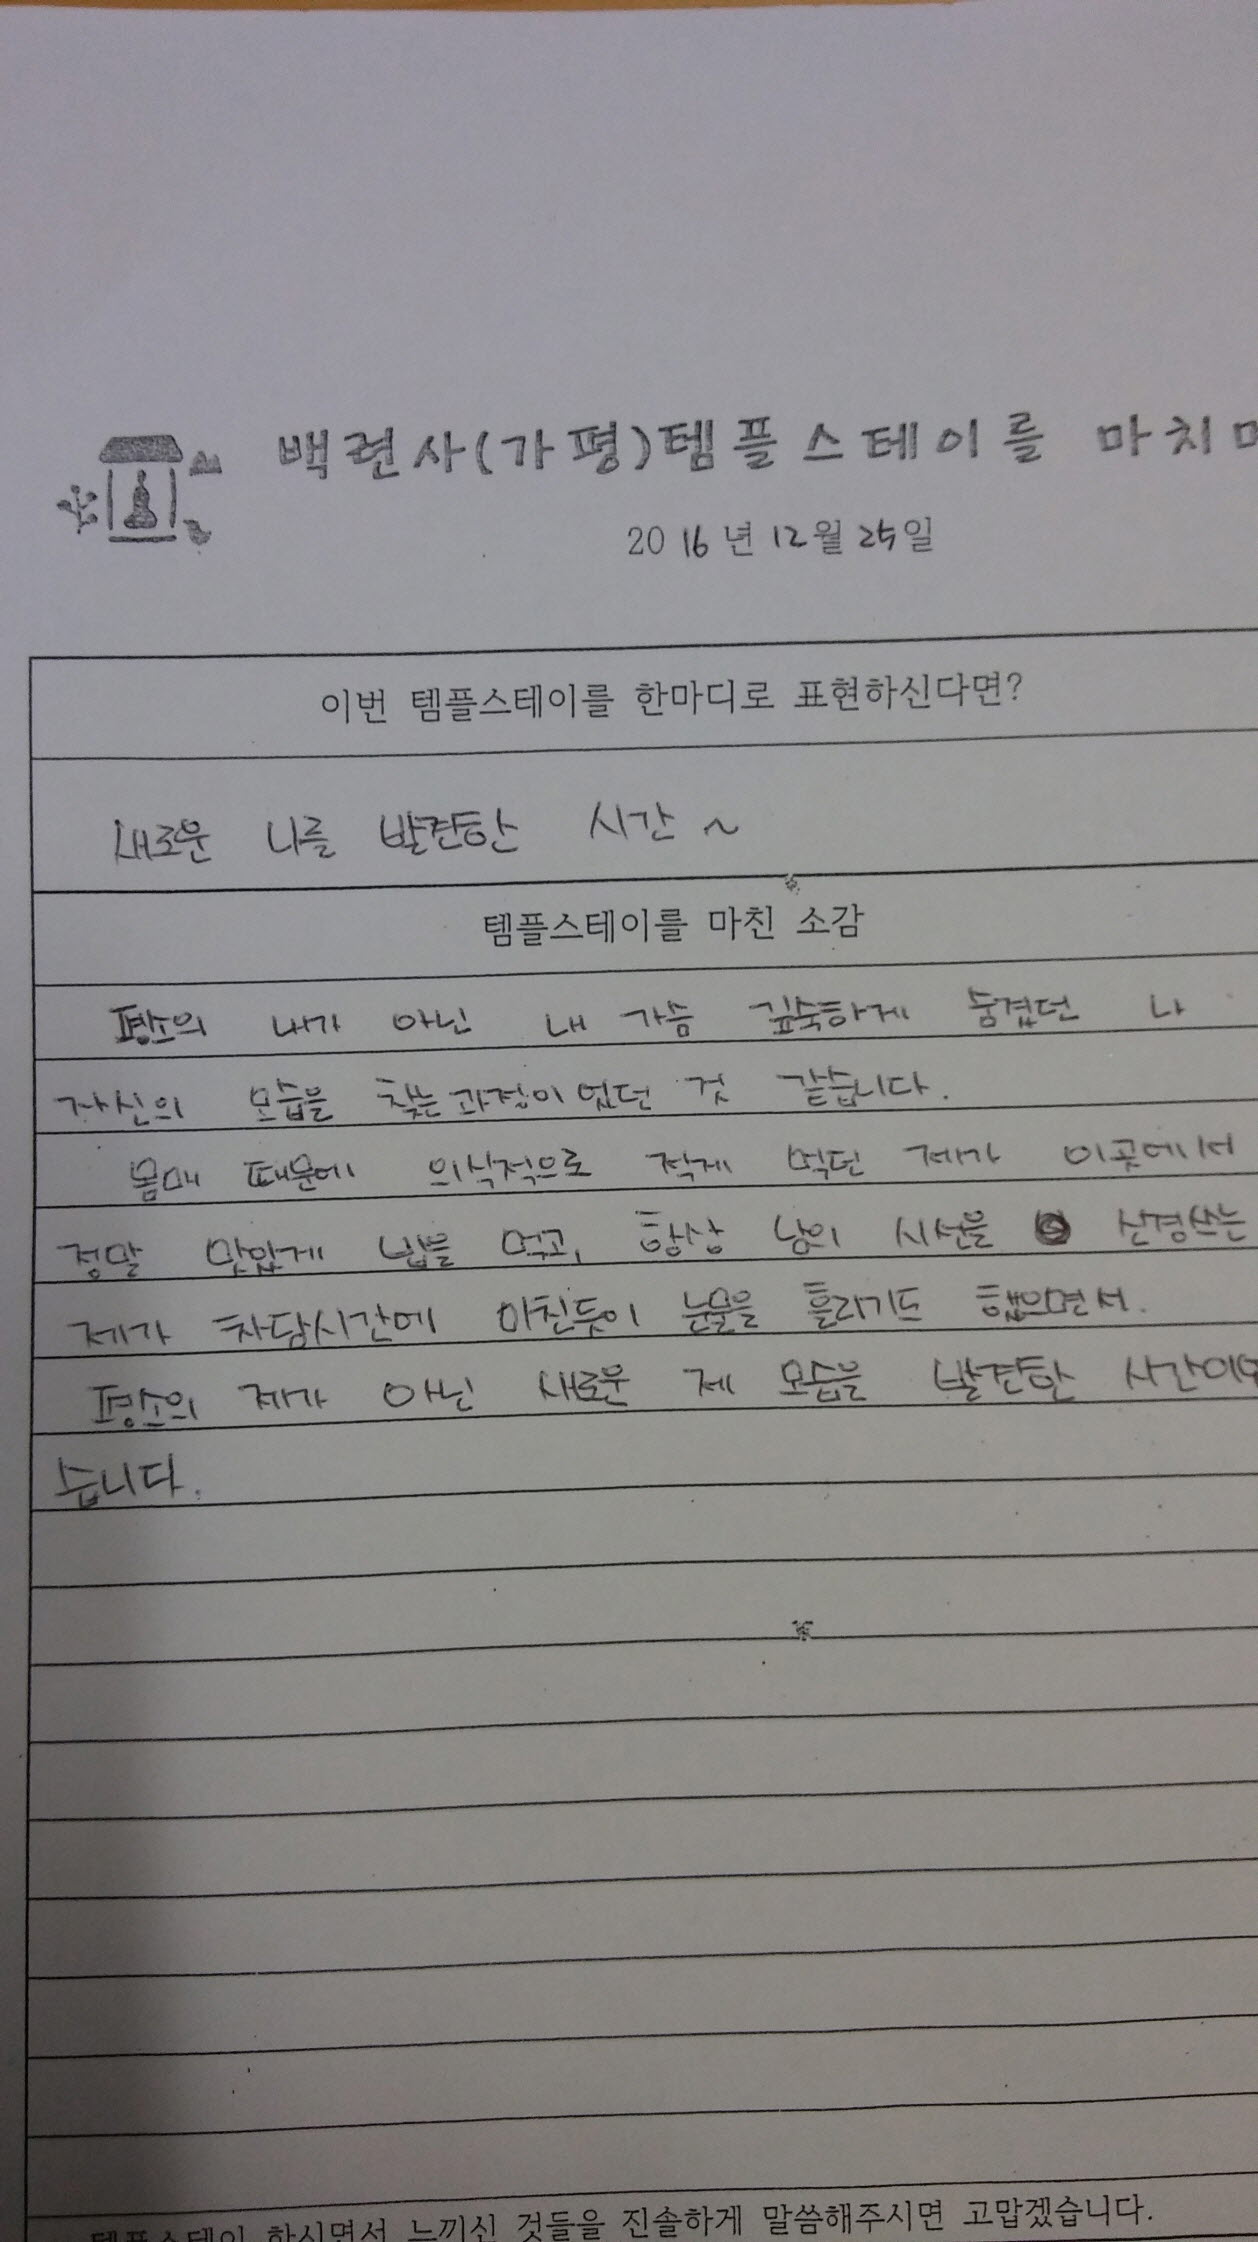 백련사(가평)템플스테이를 마치며
2016년 12월 25일
이번 템플스테이를 한마디로 표현하신다면?
새로운 나를 발견한 시간 ~
템플스테이를 마친 소감
평소의 내가 아닌 내 가슴 깊숙하게 숨겼던 나
자신의 모습을 찾는과정이었던 것 같습니다.
몸매 때문에 의식적으로 적게 먹던 제가 이곳에서
정말 맛있게 밥을 먹고, 항상 남의 시선을 신경쓰는
제가 차담시간에 미친듯이 눈물을 흘리기도 했으면서.
평소의 제가 아닌 새로운 제 모습을 발견한 시간이었
습니다.
템플스테이 하시면서 느끼신 것들을 진솔하게 말씀해주시면 고맙겠습니다.